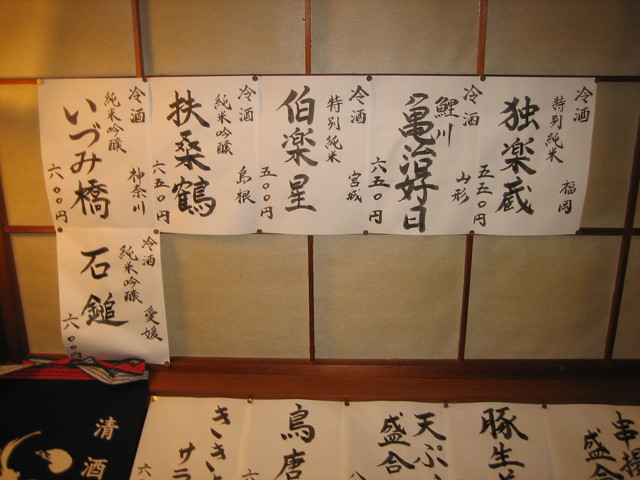 冷酒
特別純米 福岡
独楽蔵
五五〇円
冷酒
鯉川 山形
亀治好日
六五〇円
冷酒
特別純米 宮城
伯楽星
五〇〇円
冷酒
純米吟醸 島根
扶桑鶴
六五〇円
冷酒
純米吟醸 神奈川
いづみ橋
六〇〇円
冷酒
純米吟醸 愛媛
石鎚
六〇〇円
串揚
盛合
豚生
天ぷ
盛合
八
鳥唐
六
きときと
サラ
六
清酒